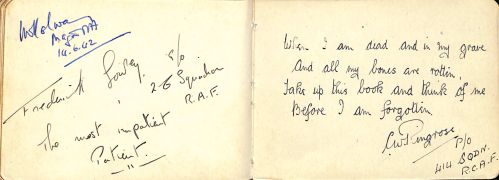 Major RA
14.6.42
Frederick Lowrey. P/O
26 Squadron
R.A.F.
The most impatient
Patient.
When I am dead and in my grave
And all my bones are rotten,
Take up this book and think of me
Before I am forgotten
CWRingrose
P/O
414 SQDN.
R.C.A.F.